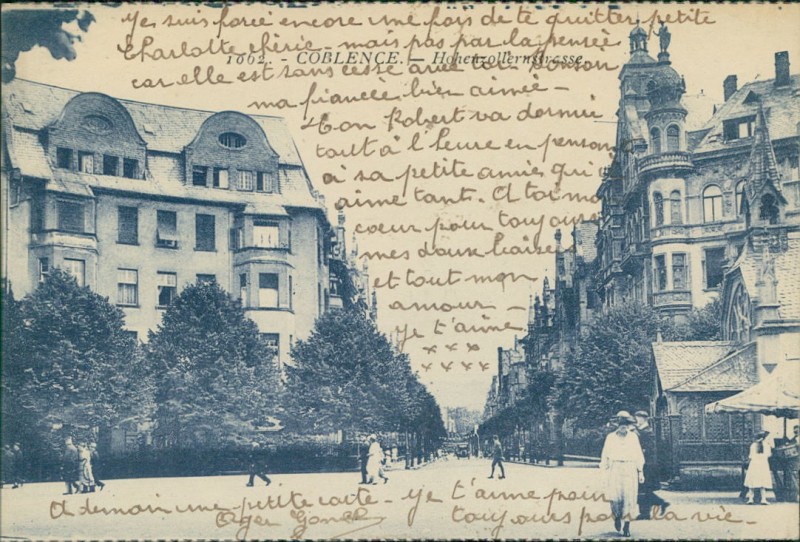 Je suis forcé encore une fois de te quitter petite
Charlotte chérie - mais pas par la pensée
1062. - COBLENCE. - Hohenzollernstrasse.
car elle est sans cesse avec toi. Bonsoir
ma fiancée bien aimée -
Ton Robert va dormir
tout à l'heure en pensant
à sa petite amie qui
aime tant. A toi mon
coeur pour toujours
mes doux baisers
et tout mon
amour -
Je t'aime
x x x x
x x x x
A demain une petite carte - Je t'aime pour
toujours pour la vie -